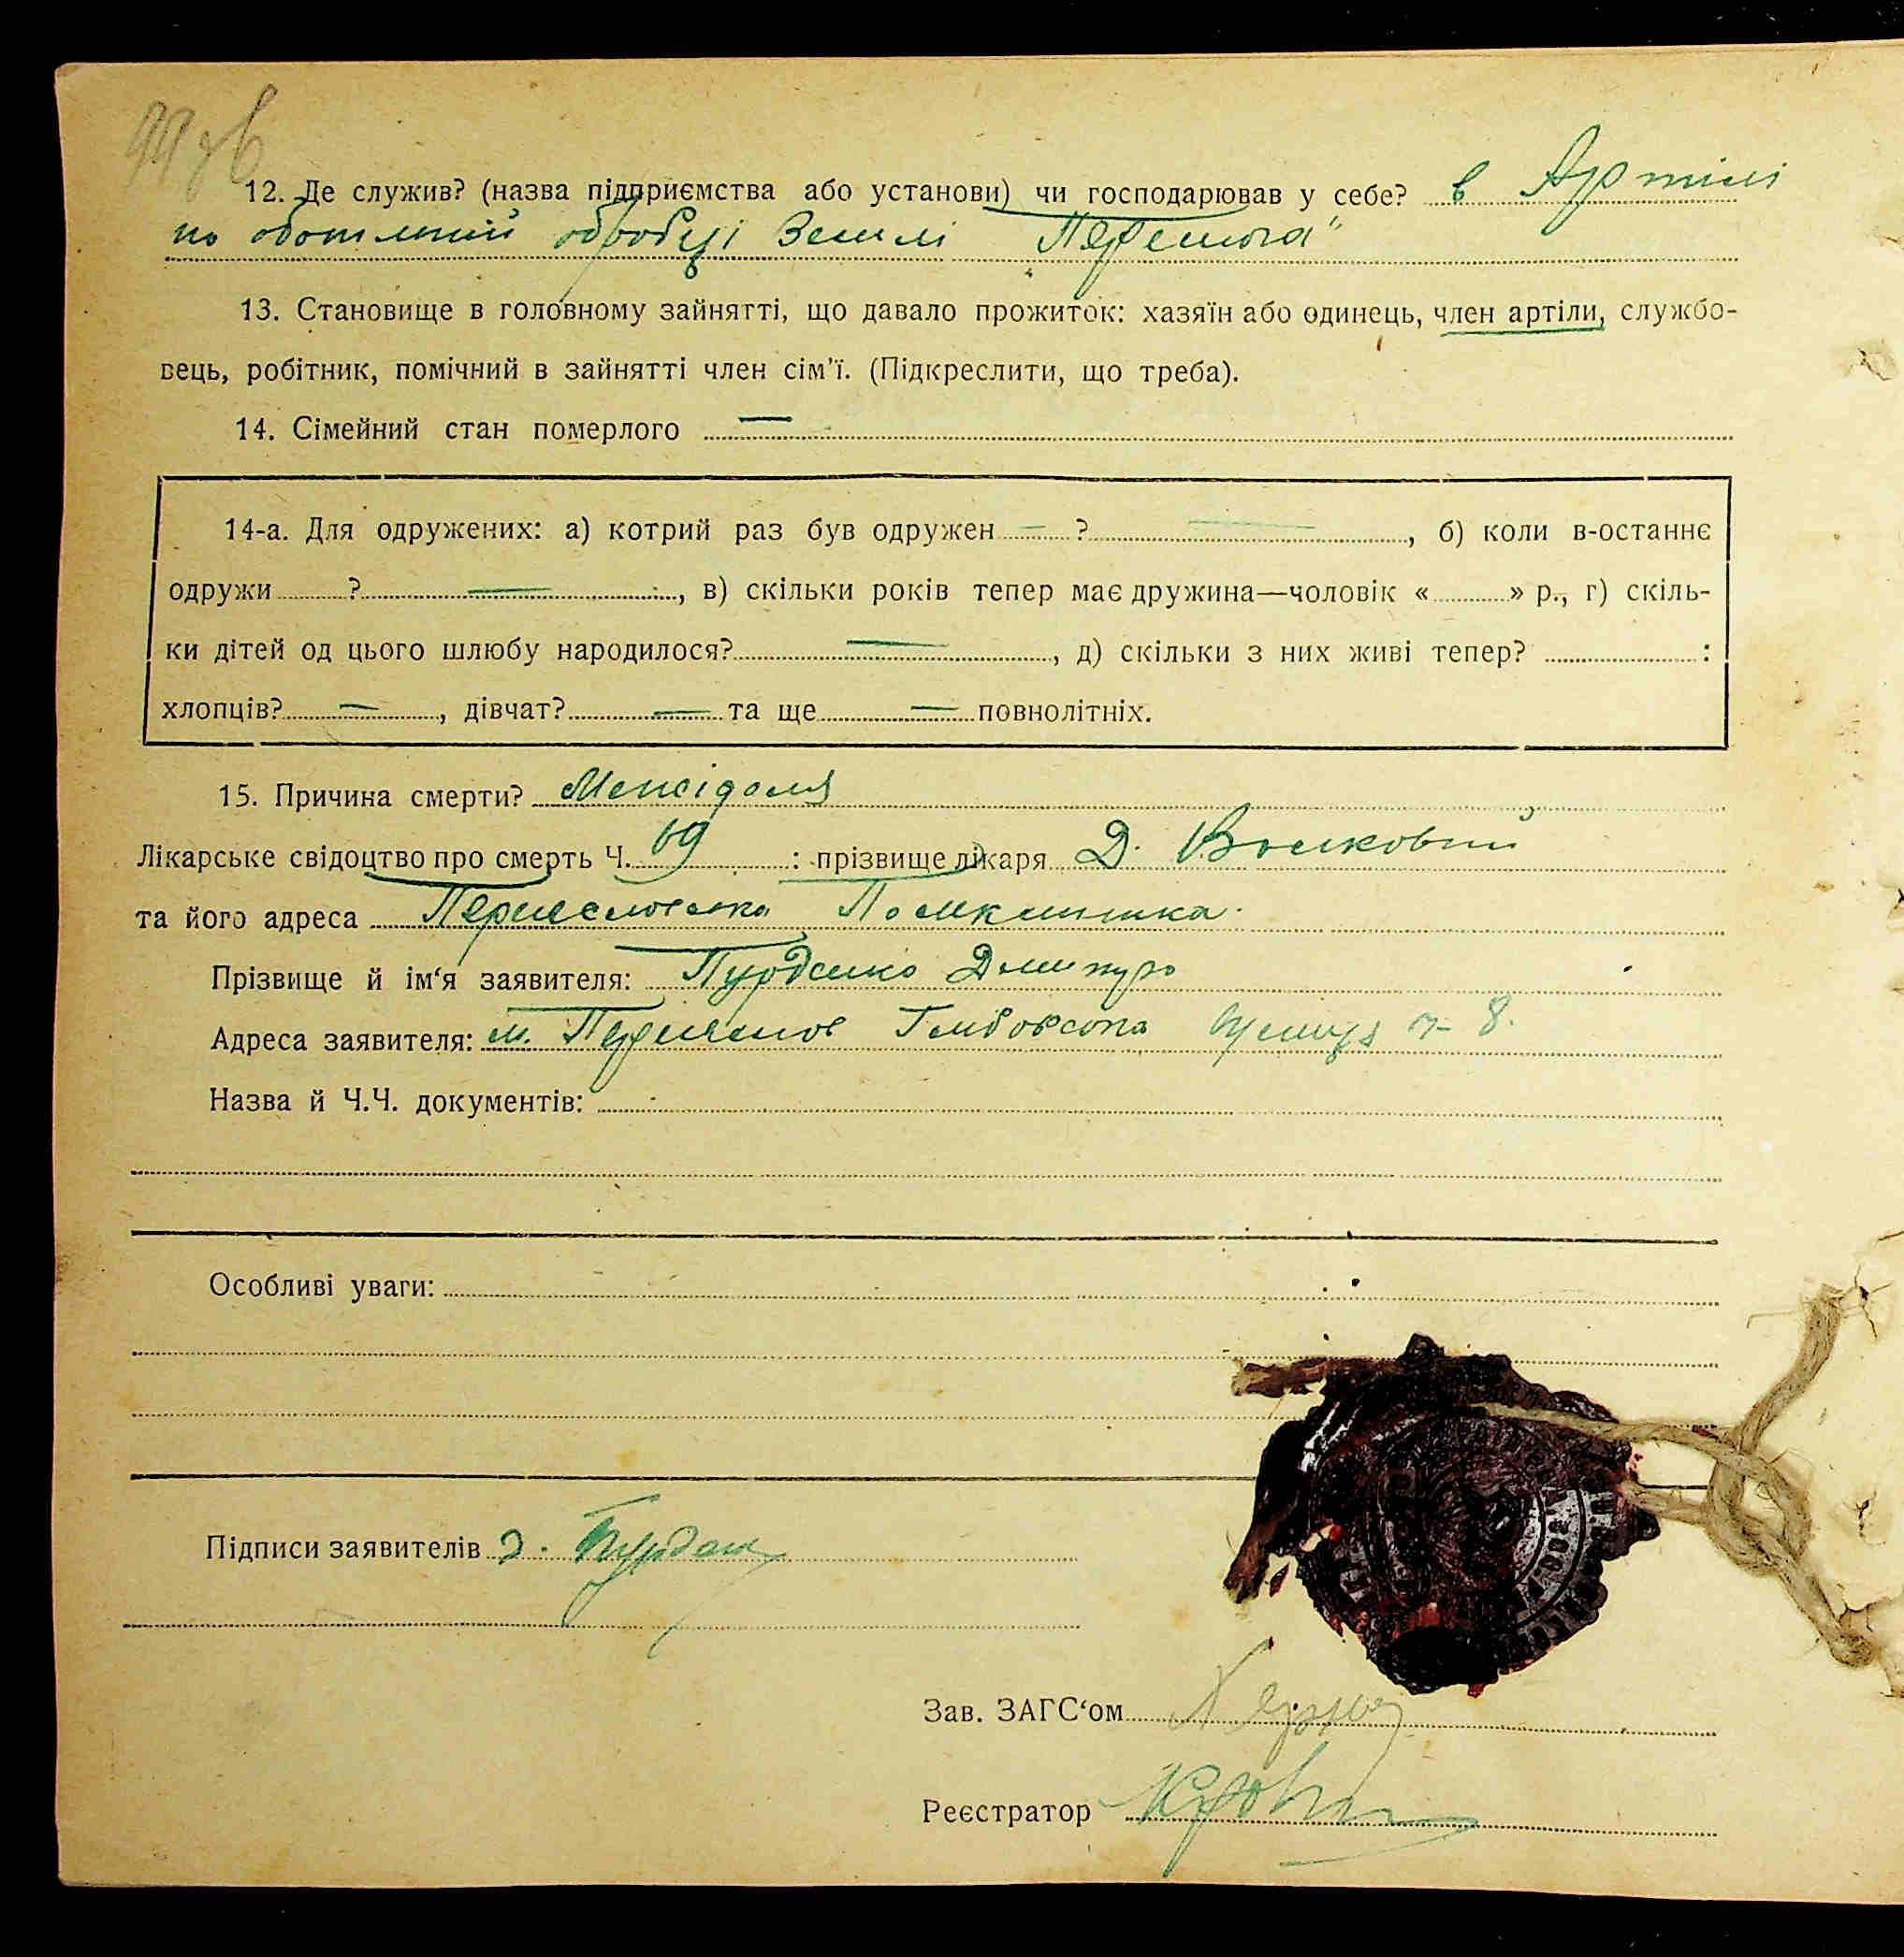 12. Де служив? (назва підприємства або установи) чи господарював у себе? в Артілі
по обробці Землі "Перемога"
13. Становище в головному зайнятті, що давало прожиток: хазяїн або одинець, член артіли, службо-
вець, робітник, помічний в зайнятті член сім'ї. (Підкреслити, що треба).
14. Сімейний стан померлого —
14-а. Для одружених: а) котрий раз був одружен — ? —, б) коли в-останнє
одружи ? —, в) скільки років тепер має дружина—чоловік « » р., г) скіль-
ки дітей од цього шлюбу народилося? —, д) скільки з них живі тепер? :
хлопців? —, дівчат? — та ще — повнолітніх.
15. Причина смерти?
Лікарське свідоцтво про смерть Ч. 69 : прізвище лікаря Д.
та його адреса Переяславська
Прізвище й ім'я заявителя: Дмитро
Адреса заявителя: м. Переяслов 8.
Назва й Ч.Ч. документів:
Особливі уваги:
Підписи заявителів
Зав. ЗАГС'ом
Реєстратор